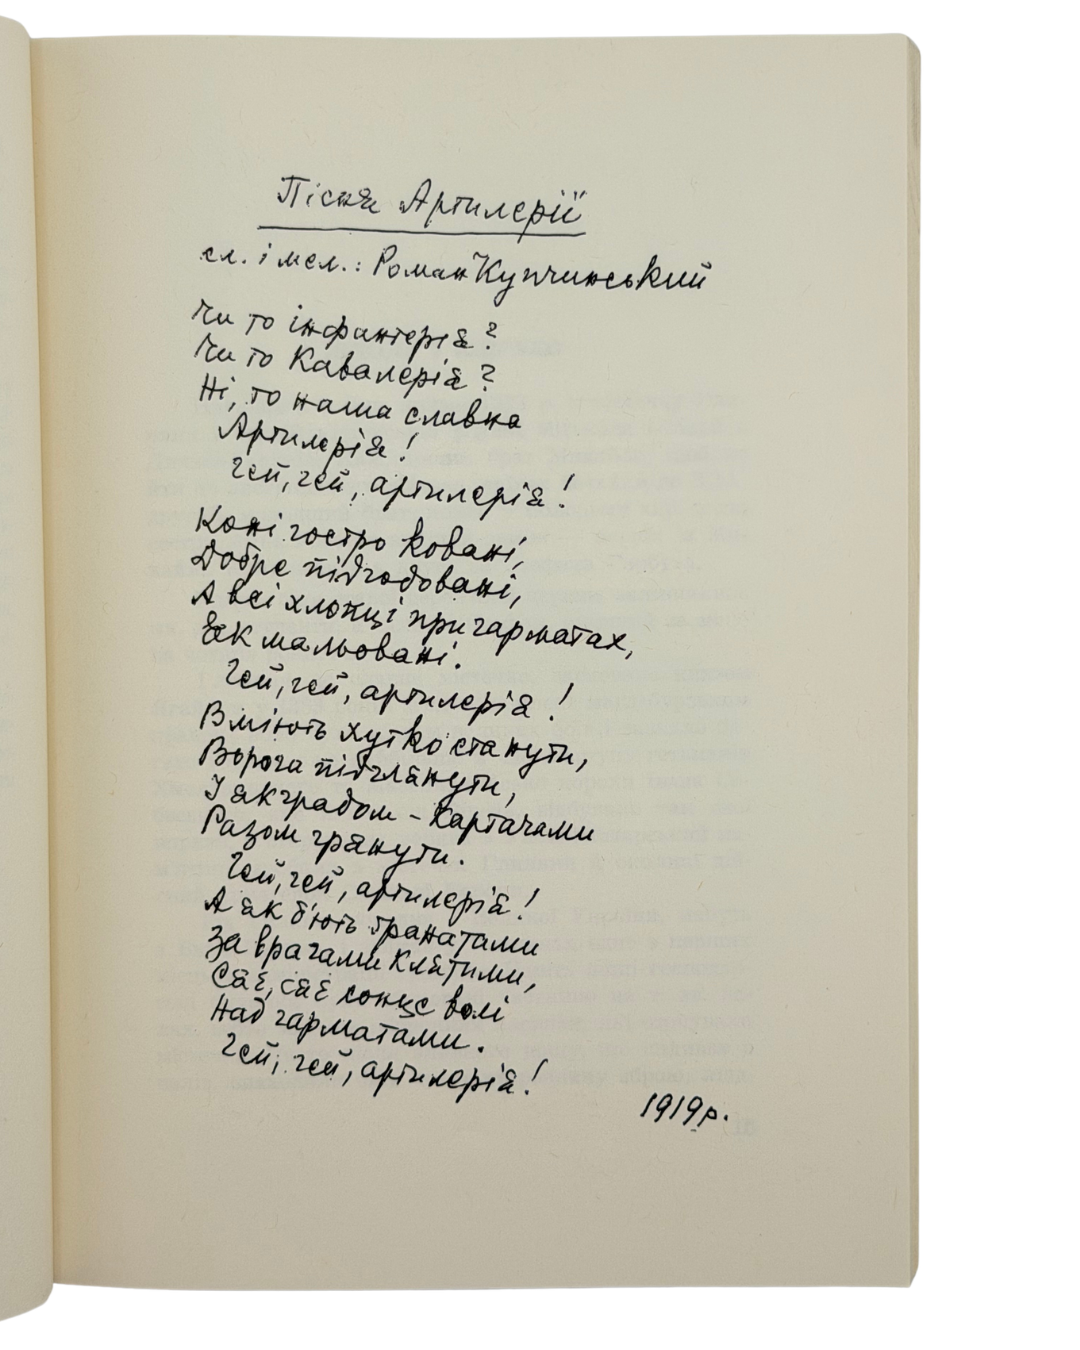 Пісня Артилерії
сл. і мел.: Роман Купчинський
Чи то інфантерія?
Чи то Кавалерія?
Ні, то наша славна
Артилерія!
Гей, гей, артилерія!
Коні гостро ковані,
Добре підгодовані,
А всі хлопці при гарматах,
Як мальовані.
Гей, гей, артилерія!
Вміють хутко станути,
Ворога підглянути,
І як градом - картачами
Разом грянути.
Гей, гей, артилерія!
А як б'ють гранатами
За врагами клятими,
Сяє, сяє сонце волі
Над гарматами.
Гей, гей, артилерія!
1919 р.